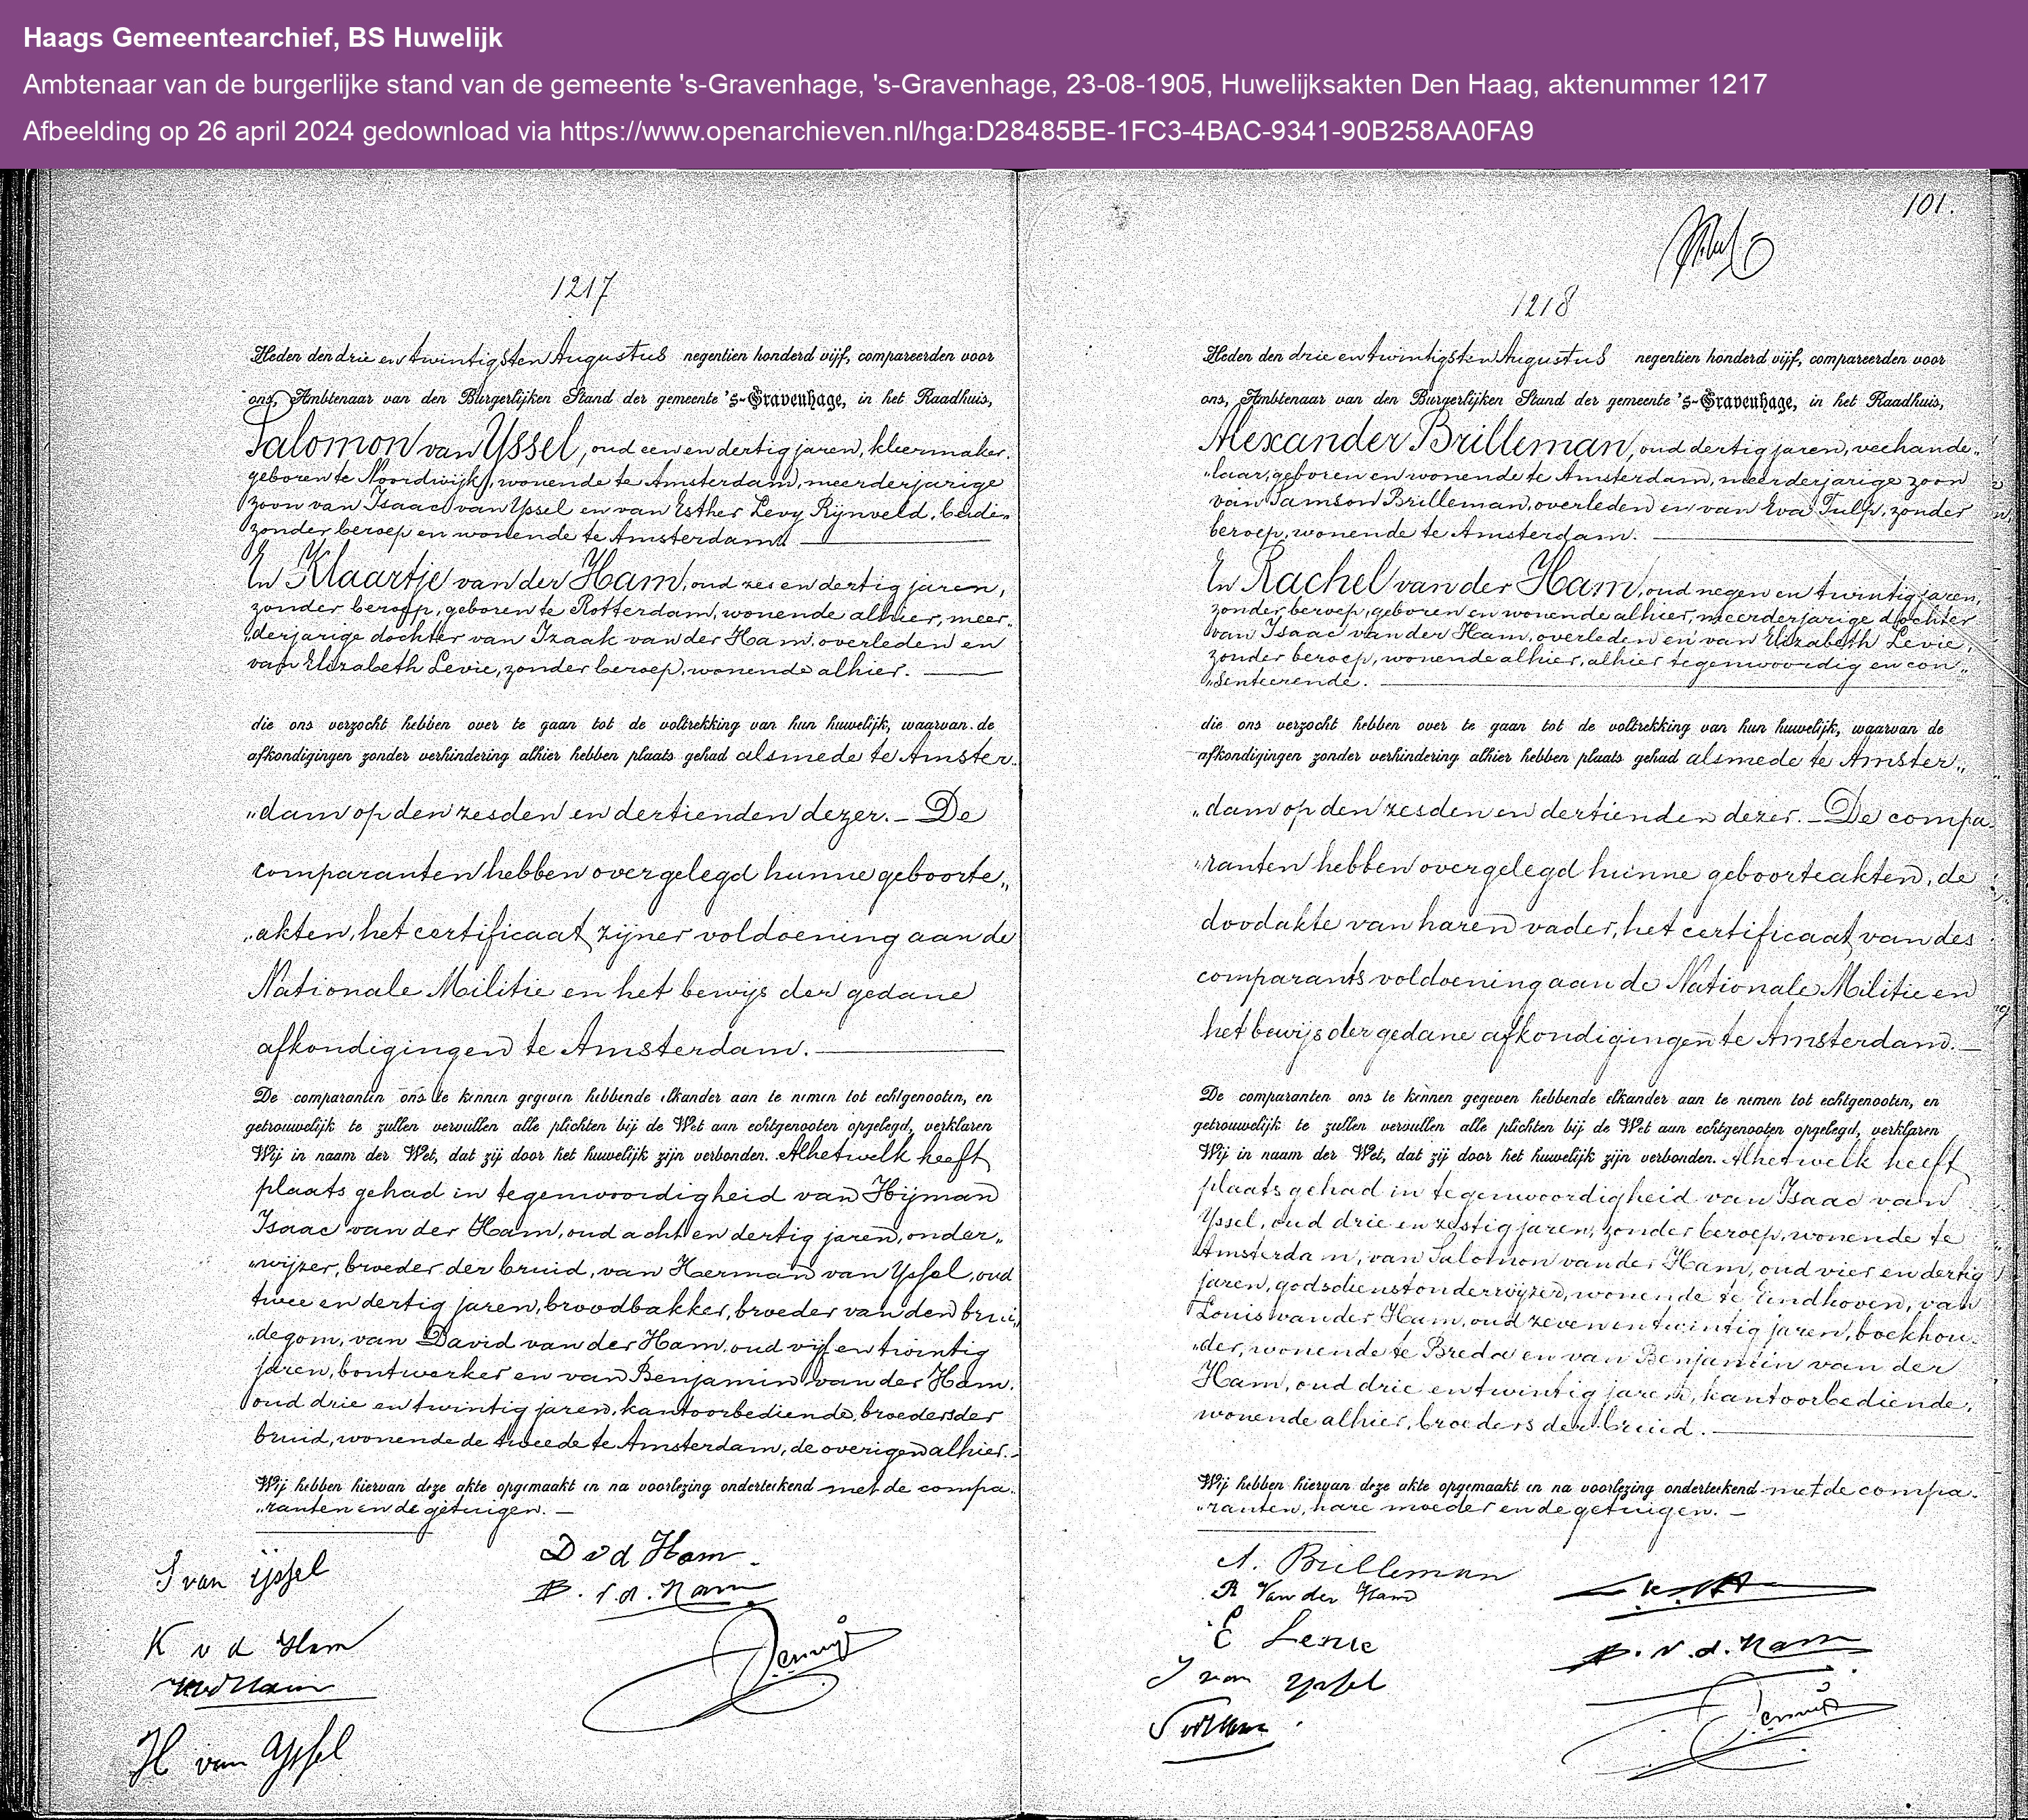 Haags Gemeentearchief, BS Huwelijk
Ambtenaar van de burgerlijke stand van de gemeente 's-Gravenhage, 's-Gravenhage, 23-08-1905, Huwelijksakten Den Haag, aktenummer 1217
Afbeelding op 26 april 2024 gedownload via https://www.openarchieven.nl/hga:D28485BE-1FC3-4BAC-9341-90B258AA0FA9
1217
Heden den drie en twintigsten Augustus negentien honderd vijf, compareerden voor
ons, Ambtenaar van den Burgerlijken Stand der gemeente 's-Gravenhage, in het Raadhuis,
Salomon van Yssel, oud een en dertig jaren, kleermaker,
geboren te Noordwijk, wonende te Amsterdam, meerderjarige
zoon van Isaac van Yssel en van Esther Levy Rijnveld, beide
zonder beroep en wonende te Amsterdam.
En Klaartje van der Ham, oud zes en dertig jaren,
zonder beroep, geboren te Rotterdam, wonende alhier, meer„
„derjarige dochter van Izaak van der Ham, overleden en
van Elizabeth Levie, zonder beroep, wonende alhier.
die ons verzocht hebben over te gaan tot de voltrekking van hun huwelijk, waarvan de
afkondigingen zonder verhindering alhier hebben plaats gehad alsmede te Amster„
„dam op den zesden en dertienden dezer. – De
comparanten hebben overgelegd hunne geboorte„
„akten, het certificaat zijner voldoening aan de
Nationale Militie en het bewijs der gedane
afkondigingen te Amsterdam.
De comparanten ons te kennen gegeven hebbende elkander aan te nemen tot echtgenooten, en
getrouwelijk te zullen vervullen alle plichten bij de Wet aan echtgenooten opgelegd, verklaren
Wij in naam der Wet, dat zij door het huwelijk zijn verbonden. Alhetwelk heeft
plaats gehad in tegenwoordigheid van Hijman
Isaac van der Ham, oud acht en dertig jaren, onder„
„wijzer, broeder der bruid, van Herman van Yssel, oud
twee en dertig jaren, broodbakker, broeder van den brui„
„degom, van David van der Ham, oud vijf en twintig
jaren, bontwerker en van Benjamin van der Ham,
oud drie en twintig jaren, kantoorbediende, broeders der
bruid, wonende de tweede te Amsterdam, de overigen alhier. –
Wij hebben hiervan deze akte opgemaakt en na voorlezing onderteekend met de compa„
„ranten en de getuigen. –
S van ijssel
D v d Ham
B. v. d. Ham
K v d Ham
H van Yssel
101.
1218
Heden den drie en twintigsten Augustus negentien honderd vijf, compareerden voor
ons, Ambtenaar van den Burgerlijken Stand der gemeente 's-Gravenhage, in het Raadhuis,
Alexander Brilleman, oud dertig jaren, veehande„
„laar, geboren en wonende te Amsterdam, meerderjarige zoon
van Samson Brilleman, overleden en van Eva Tulp, zonder
beroep, wonende te Amsterdam.
En Rachel van der Ham, oud negen en twintig jaren,
zonder beroep, geboren en wonende alhier, meerderjarige dochter
van Isaac van der Ham, overleden en van Elizabeth Levie,
zonder beroep, wonende alhier, alhier tegenwoordig en con„
„senteerende.
die ons verzocht hebben over te gaan tot de voltrekking van hun huwelijk, waarvan de
afkondigingen zonder verhindering alhier hebben plaats gehad alsmede te Amster„
„dam op den zesden en dertienden dezer. – De compa„
„ranten hebben overgelegd hunne geboorteakten, de
doodakte van haren vader, het certificaat van des
comparants voldoening aan de Nationale Militie en
het bewijs der gedane afkondigingen te Amsterdam. –
De comparanten ons te kennen gegeven hebbende elkander aan te nemen tot echtgenooten, en
getrouwelijk te zullen vervullen alle plichten bij de Wet aan echtgenooten opgelegd, verklaren
Wij in naam der Wet, dat zij door het huwelijk zijn verbonden. Alhetwelk heeft
plaats gehad in tegenwoordigheid van Isaac van
Yssel, oud drie en zestig jaren, zonder beroep, wonende te
Amsterdam, van Salomon van der Ham, oud vier en dertig
jaren, godsdienstonderwijzer, wonende te Eindhoven, van
Louis van der Ham, oud zeven en twintig jaren, boekhou„
„der, wonende te Breda en van Benjamin van der
Ham, oud drie en twintig jaren, kantoorbediende,
wonende alhier, broeders der bruid.
Wij hebben hiervan deze akte opgemaakt en na voorlezing onderteekend met de compa„
„ranten, hare moeder en de getuigen. –
A. Brilleman
R Van der Ham
E Levie
I van Yssel
B. v. d. Ham